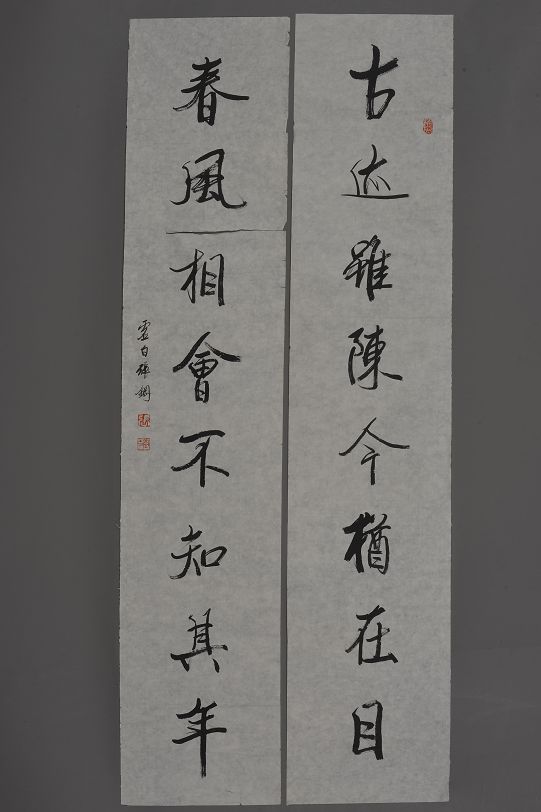 古迹雖陳今猶在目
春風相會不知其年